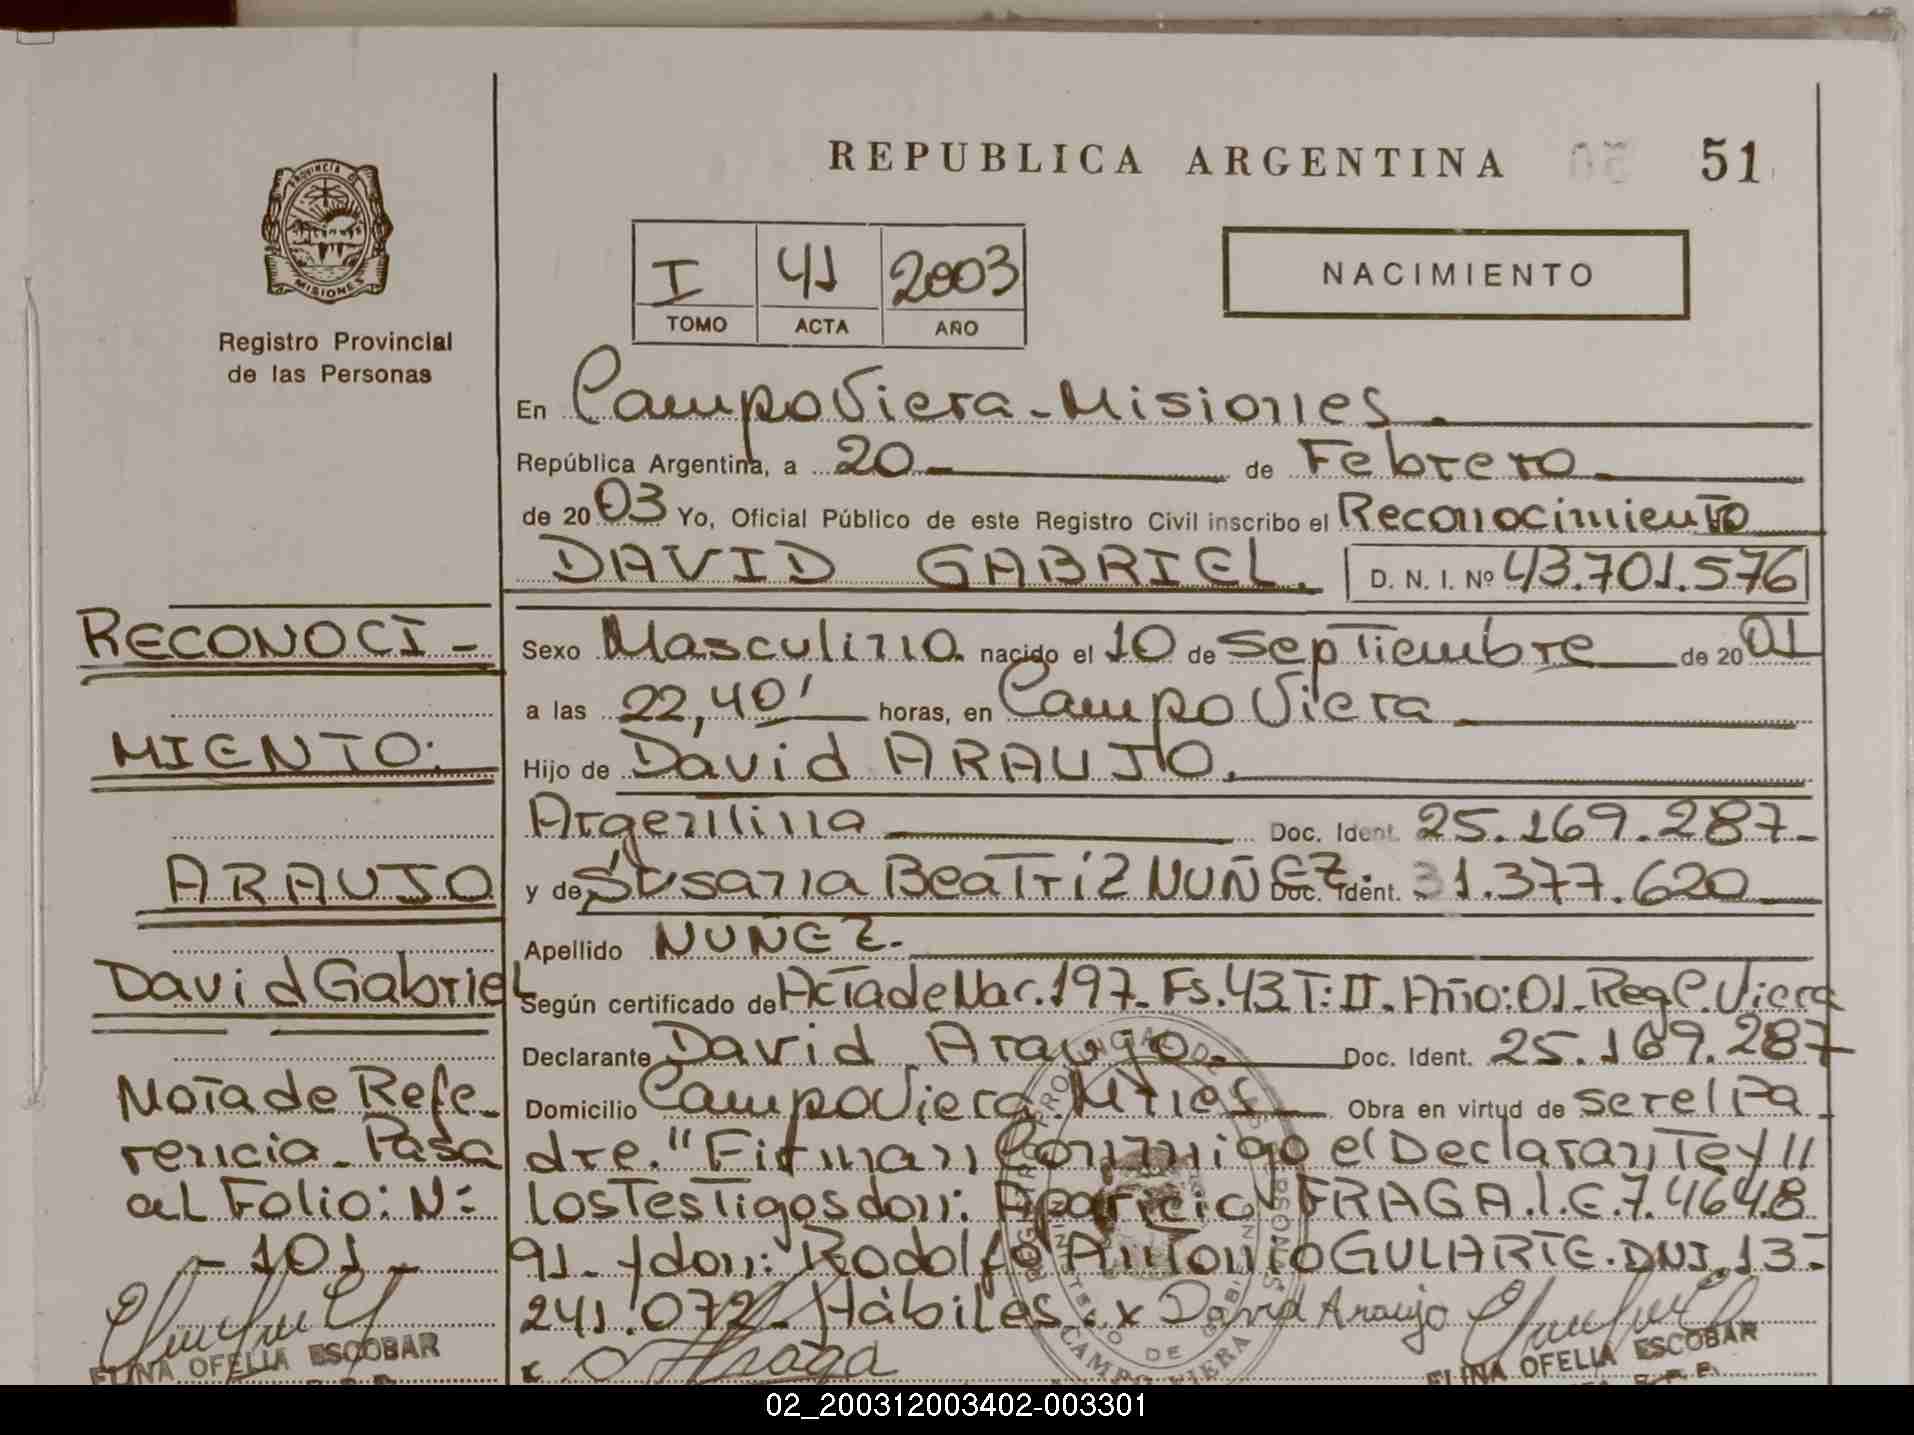 REPUBLICA ARGENTINA 51
PROVINCIA D
MISIONES
Registro Provincial
de las Personas
I 41 2003
TOMO ACTA AÑO
NACIMIENTO
En Campo Viera - Misiones.
República Argentina, a 20 de Febrero
de 2003 Yo, Oficial Público de este Registro Civil inscribo el Reconocimiento
DAVID GABRIEL. D. N. I. Nº 43.701.576
Sexo Masculino nacido el 10 de Septiembre de 2001
a las 22,40' horas, en Campo Viera
Hijo de David ARAUJO.
Argentina Doc. Ident. 25.169.287-
y de Susana Beatriz NUÑEZ. Doc. Ident. 31.377.620
Apellido NUÑEZ.
Según certificado de Acta de Nac. 197- Fs. 43 T: II. Año: 01- Reg C. Viera
Declarante David Araujo. Doc. Ident. 25.169.287
Domicilio Campo Viera Mnes Obra en virtud de ser el Pa-
dre. "Firman Conmigo el Declarante y //
los Testigos don: Aparicio FRAGA. L.E. 7.4648
91- y don: Rodolfo Antonio GULARTE. DNI. 13-
241.072- Hábiles. x David Araujo
x Fraga
RECONOCI-
MIENTO:
ARAUJO
David Gabriel
Nota de Refe-
rencia- Pasa
al Folio: Nº
- 101 -
ELINA OFELIA ESCOBAR
ELINA OFELIA ESCOBAR
CAMPO VIERA
02_200312003402-003301